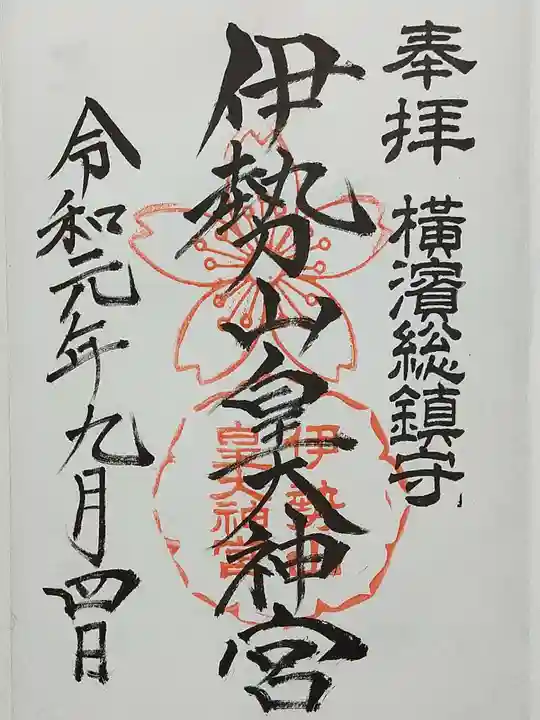 奉拝 橫濱総鎮守
伊勢山皇大神宮
伊勢山
皇大神宮
令和元年九月四日